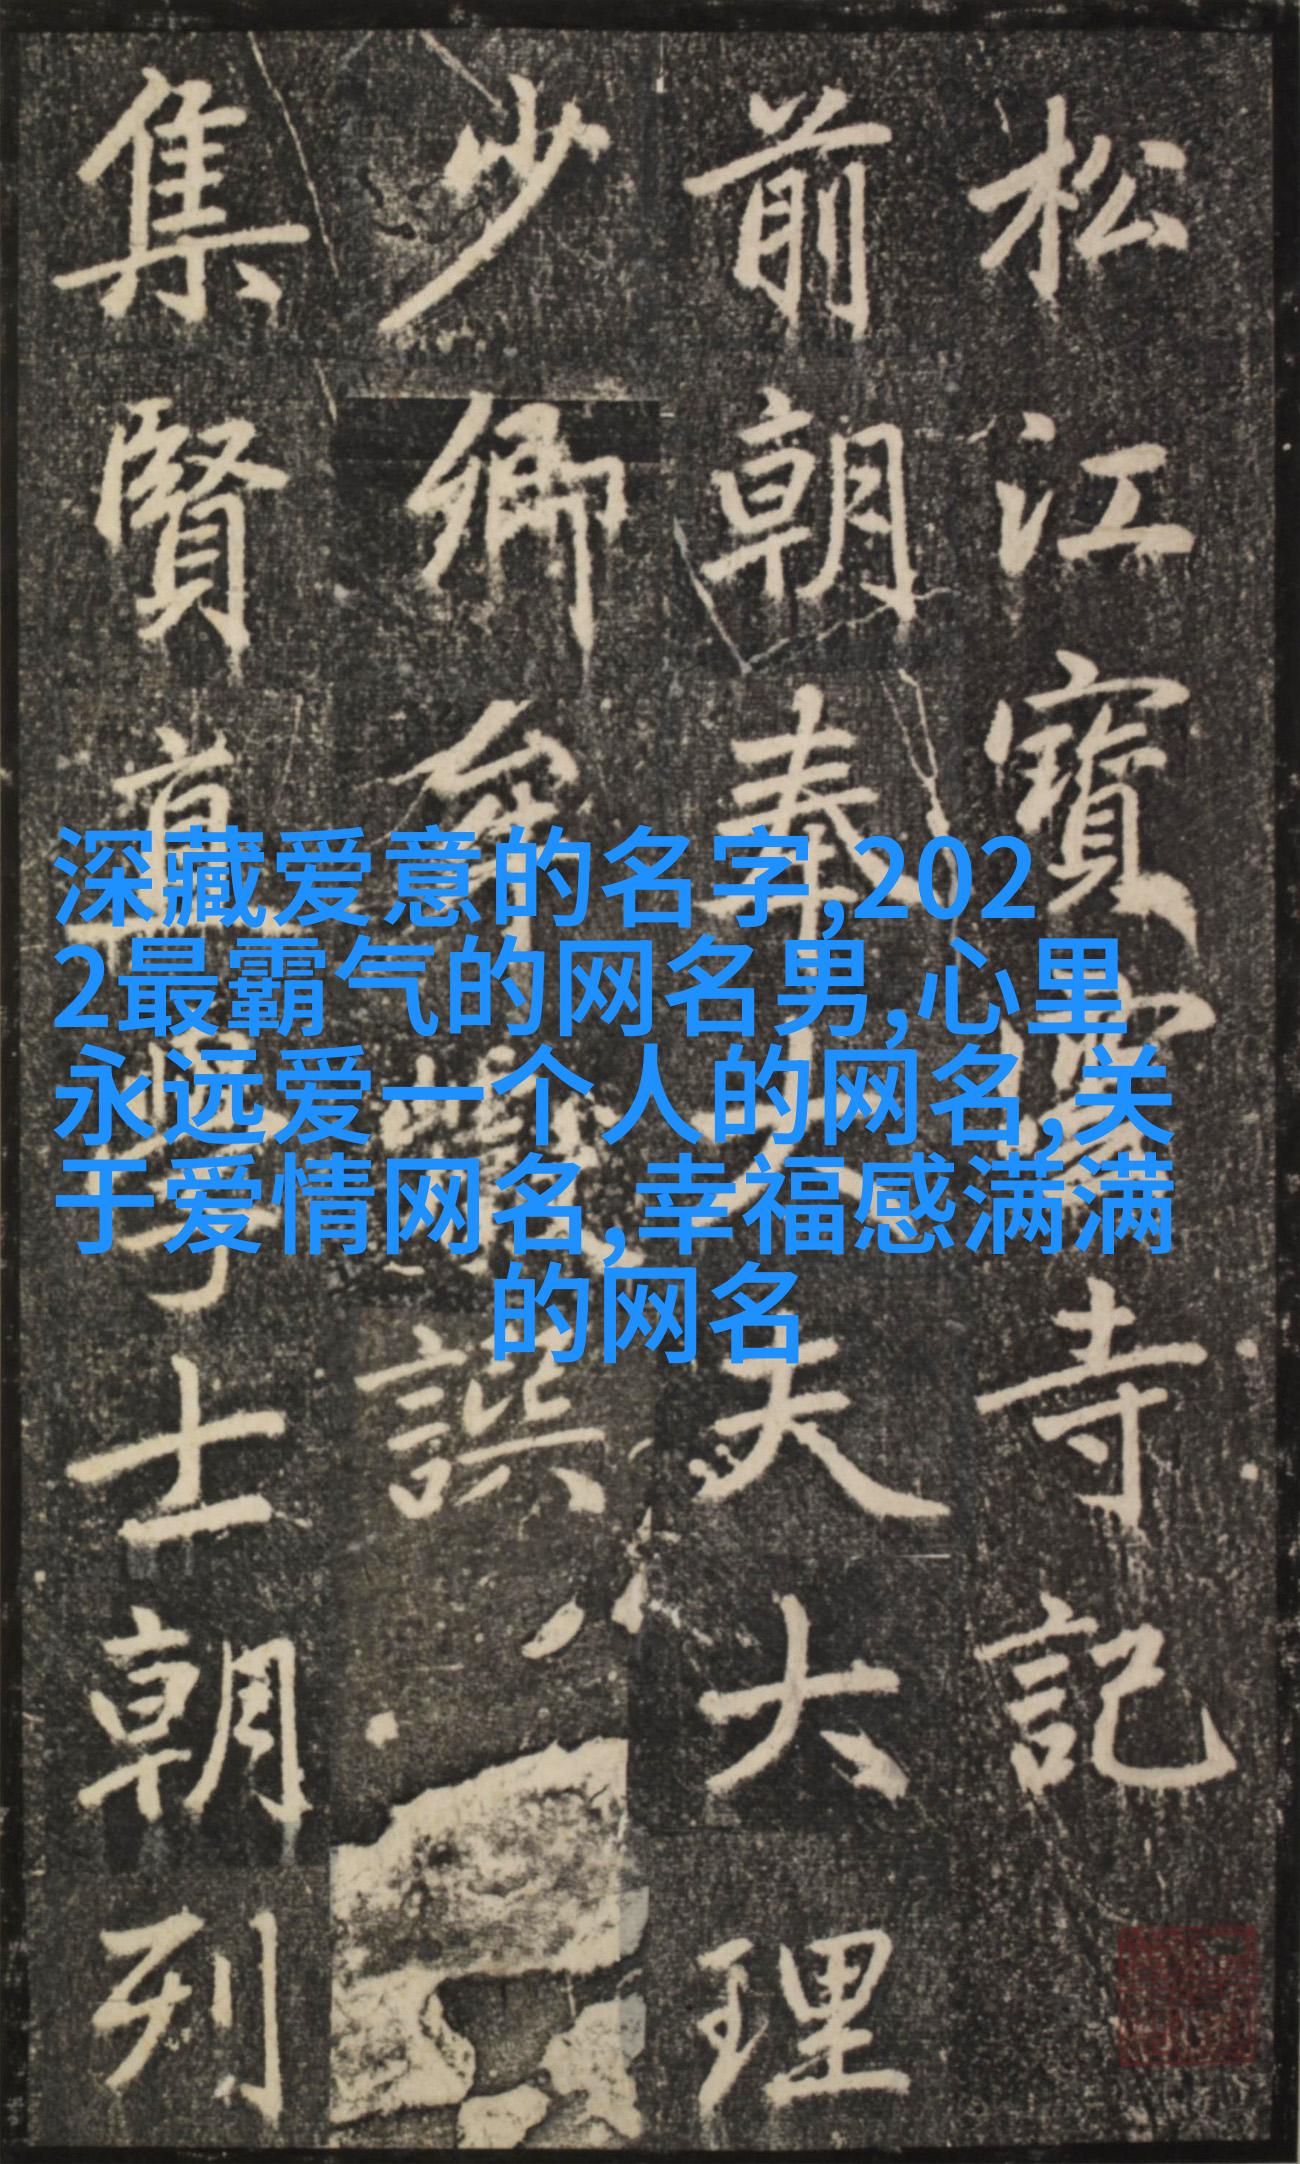 松江寶雲寺記
前朝奉大夫大理
少卿牟巘譔
集賢直學士朝列
深藏爱意的名字,202
2最霸气的网名男,心里
永远爱一个人的网名,关
于爱情网名,幸福感满满
的网名